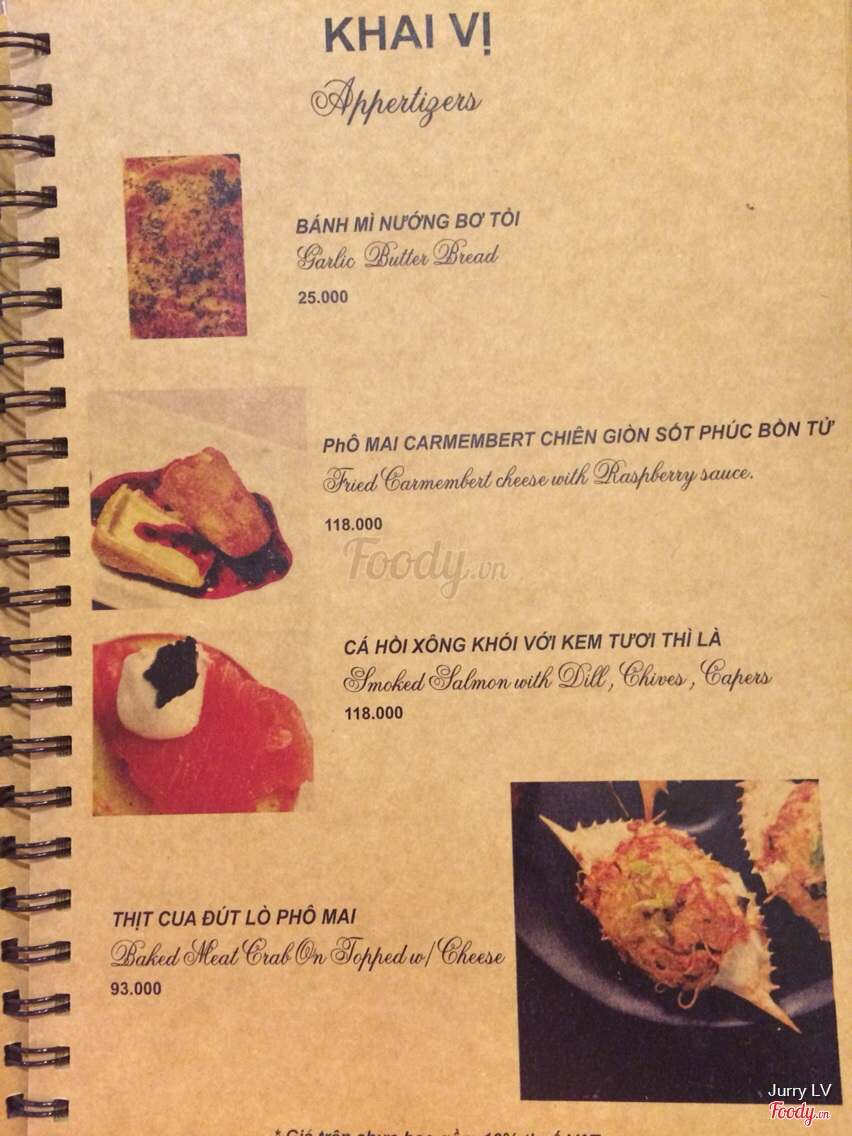 KHAI VỊ
Appertizers
BÁNH MÌ NƯỚNG BƠ TỎI
Garlic Butter Bread
25.000
PhÔ MAI CARMEMBERT CHIÊN GIÒN SỐT PHÚC BỒN TỬ
Fried Carmembert cheese with Raspberry sauce.
118.000
Foody.vn
CÁ HỒI XÔNG KHÓI VỚI KEM TƯƠI THÌ LÀ
Smoked Salmon with Dill, Chives, Capers
118.000
THỊT CUA ĐÚT LÒ PHÔ MAI
Baked Meat Crab On Topped w/ Cheese
93.000
Jurry LV
Foody.vn